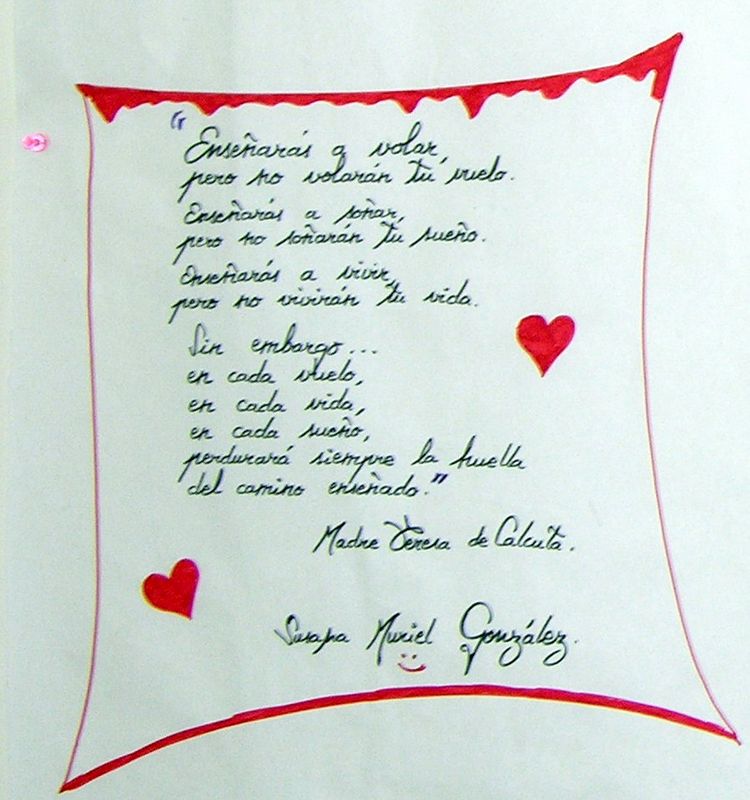 "Enseñarás a volar,
pero no volarán tu vuelo.
Enseñarás a soñar,
pero no soñarán tu sueño.
Enseñarás a vivir,
pero no vivirán tu vida.
Sin embargo...
en cada vuelo,
en cada vida,
en cada sueño,
perdurará siempre la huella
del camino enseñado."
Madre Teresa de Calcuta.
Susana Muriel González.